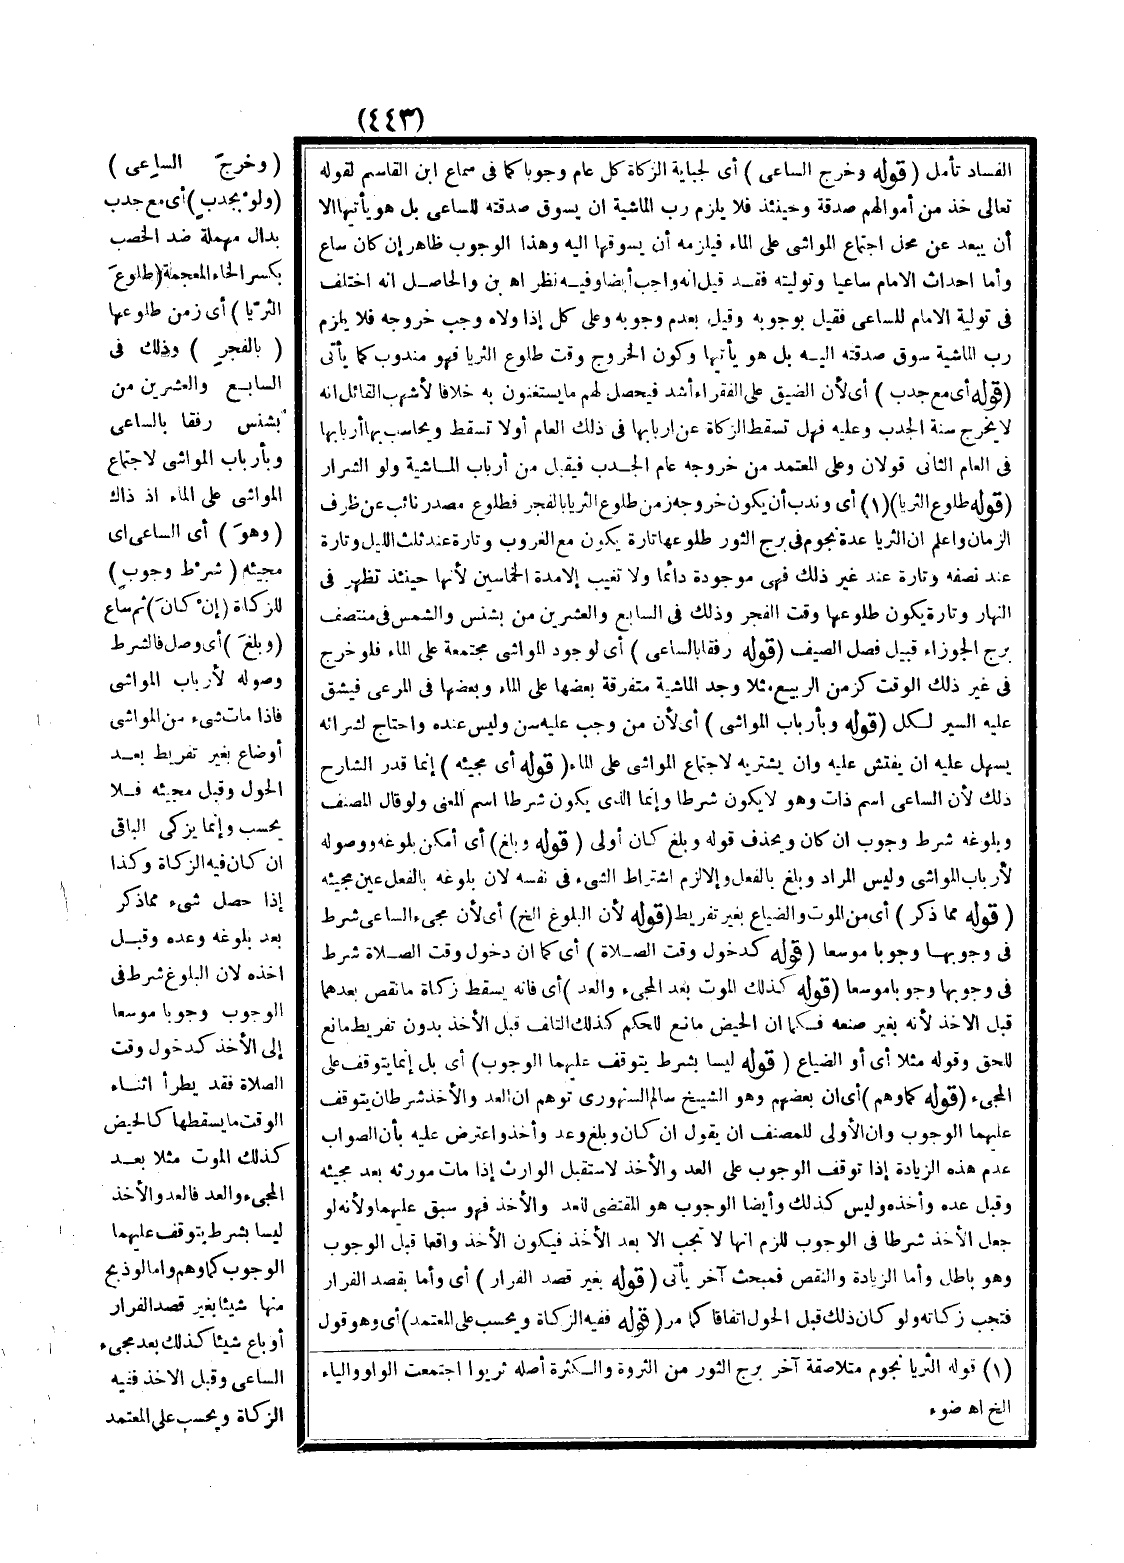 (٤٤٣)
الفساد تأمل (قوله وخرج الساعى) أى لجباية الزكاة كل عام وجوبا كما فى سماع ابن القاسم لقوله
تعالى خذ من أموالهم صدقة وحينئذ فلا يلزم رب الماشية ان يسوق صدقته للساعى بل هو يأتيها الا
أن يبعد عن محل اجتماع المواشى على الماء فيلزمه أن يسوقها اليه وهذا الوجوب ظاهر إن كان ساع
وأما احداث الامام ساعيا وتوليته فقد قيل انه واجب أيضا وفيه نظر اه بن والحاصل انه اختلف
فى تولية الامام للساعى فقيل بوجوبه وقيل بعدم وجوبه وعلى كل إذا ولاه وجب خروجه فلا يلزم
رب الماشية سوق صدقته اليه بل هو يأتيها وكون الخروج وقت طلوع الثريا فهو مندوب كما يأتى
(قوله أى مع جدب) أى لأن الضيق على الفقراء أشد فيحصل لهم ما يستغنون به خلافا لأشهب القائل انه
لا يخرج سنة الجدب وعليه فهل تسقط الزكاة عن اربابها فى ذلك العام أولا تسقط ويحاسب بها أربابها
فى العام الثانى قولان وعلى المعتمد من خروجه عام الجدب فيقبل من أرباب الماشية ولو الشرار
(قوله طلوع الثريا)(١) أى وندب أن يكون خروجه زمن طلوع الثريا بالفجر فطلوع مصدر نائب عن ظرف
الزمان واعلم ان الثريا عدة نجوم فى برج الثور طلوعها تارة يكون مع الغروب وتارة عند ثلث الليل وتارة
عند نصفه وتارة عند غير ذلك فهى موجودة دائما ولا تغيب إلا مدة الخماسين لأنها حينئذ تظهر فى
النهار وتارة يكون طلوعها وقت الفجر وذلك فى السابع والعشرين من بشنس والشمس فى منتصف
برج الجوزاء قبيل فصل الصيف (قوله رفقا بالساعى) أى لوجود المواشى مجتمعة على الماء فلو خرج
فى غير ذلك الوقت كزمن الربيع مثلا وجد الماشية متفرقة بعضها على الماء وبعضها فى المرعى فيشق
عليه السير لكل (قوله وبأرباب المواشى) أى لأن من وجب عليه سن وليس عنده واحتاج لشرائه
يسهل عليه ان يفتش عليه وان يشتريه لاجتماع المواشى على الماء (قوله أى مجيئه) إنما قدر الشارح
ذلك لأن الساعى اسم ذات وهو لا يكون شرطا وإنما الذى يكون شرطا اسم المعنى ولو قال المصنف
وبلوغه شرط وجوب ان كان ويحذف قوله وبلغ كان أولى (قوله وبلغ) أى أمكن بلوغه ووصوله
لأرباب المواشى وليس المراد وبلغ بالفعل وإلا لزم اشتراط الشىء فى نفسه لان بلوغه بالفعل عين مجيئه
(قوله مما ذكر) أى من الموت والضياع بغير تفريط (قوله لأن البلوغ الخ) أى لأن مجىء الساعى شرط
فى وجوبها وجوبا موسعا (قوله كدخول وقت الصلاة) أى كما ان دخول وقت الصلاة شرط
فى وجوبها وجوبا موسعا (قوله كذلك الموت بعد المجىء والعد) أى فانه يسقط زكاة ما نقص بعدهما
قبل الاخذ لأنه بغير صنعه فكما ان الحيض مانع للحكم كذلك التلف قبل الأخذ بدون تفريط مانع
للحق وقوله مثلا أى أو الضياع (قوله ليسا بشرط يتوقف عليهما الوجوب) أى بل إنما يتوقف على
المجىء (قوله كما وهم) أى ان بعضهم وهو الشيخ سالم السنهورى توهم ان العد والأخذ شرطان يتوقف
عليهما الوجوب وان الأولى للمصنف ان يقول ان كان وبلغ وعد وأخذ واعترض عليه بأن الصواب
عدم هذه الزيادة إذا توقف الوجوب على العد والأخذ لاستقبل الوارث إذا مات مورثه بعد مجيئه
وقبل عده وأخذه وليس كذلك وأيضا الوجوب هو المقتضى للعد والأخذ فهو سبق عليهما ولأنه لو
جعل الأخذ شرطا فى الوجوب للزم انها لا تجب الا بعد الأخذ فيكون الأخذ واقعا قبل الوجوب
وهو باطل وأما الزيادة والنقص فمبحث آخر يأتى (قوله بغير قصد الفرار) أى وأما بقصد الفرار
فتجب زكاته ولو كان ذلك قبل الحول اتفاقا كما مر (قوله ففيه الزكاة ويحسب على المعتمد) أى وهو قول
(١) قوله الثريا نجوم متلاصقة آخر برج الثور من الثروة والكثرة أصله ثريوا اجتمعت الواو والياء
الخ اه ضوء
(وخرج الساعى)
(ولو بجدب) أى مع جدب
بدال مهملة ضد الخصب
بكسر الخاء المعجمة (طلوع
الثريا) أى زمن طلوعها
(بالفجر) وذلك فى
السابع والعشرين من
بشنس رفقا بالساعى
وبأرباب المواشى لاجتماع
المواشى على الماء اذ ذاك
(وهو) أى الساعى اى
مجيئه (شرط وجوب)
للزكاة (إن كان) ثم ساع
(وبلغ) أى وصل فالشرط
وصوله لأرباب المواشى
فاذا مات شىء من المواشى
أو ضاع بغير تفريط بعد
الحول وقبل مجيئه فلا
يحسب وإنما يزكى الباقى
ان كان فيه الزكاة وكذا
إذا حصل شىء مما ذكر
بعد بلوغه وعده وقبل
اخذه لان البلوغ شرط فى
الوجوب وجوبا موسعا
إلى الأخذ كدخول وقت
الصلاة فقد يطرأ اثناء
الوقت ما يسقطها كالحيض
كذلك الموت مثلا بعد
المجىء والعد فالعد والأخذ
ليسا بشرط يتوقف عليهما
الوجوب كما وهم واما لو ذبح
منها شيئا بغير قصد الفرار
أو باع شيئا كذلك بعد مجىء
الساعى وقبل الاخذ ففيه
الزكاة ويحسب على المعتمد